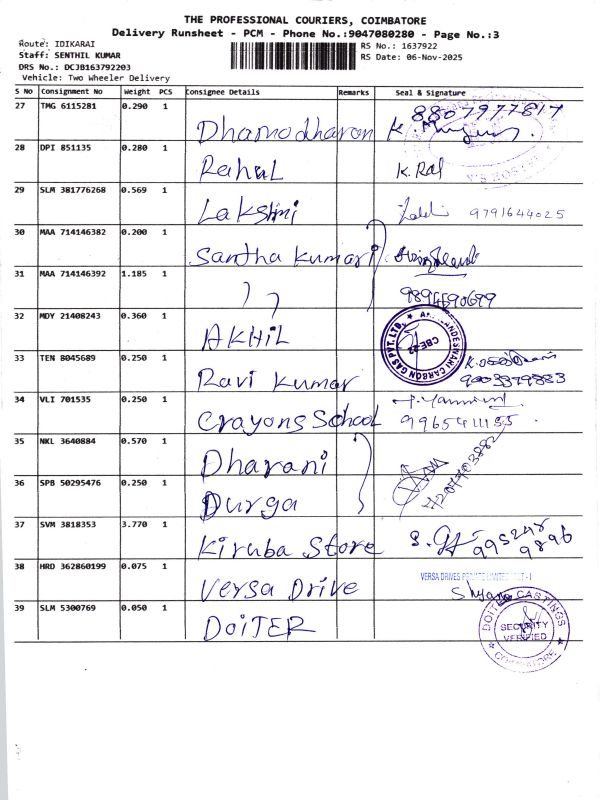 THE PROFESSIONAL COURIERS, COIMBATORE
Delivery Runsheet - PCM - Phone No.:9047080280 - Page No.:3
Route: IDIKARAI
RS No.: 1637922
Staff: SENTHIL KUMAR
RS Date: 06-Nov-2025
DRS No.: DCJB163792203
Vehicle: Two Wheeler Delivery
S No Consignment No Weight PCS Consignee Details Remarks Seal & Signature
27 TMG 6115281 0.290 1 Dhamodharan 8807977817
28 DPI 851135 0.280 1 Rahul K. Raj
29 SLM 381776268 0.569 1 Lakshmi 9791644025
30 MAA 714146382 0.200 1 Santha Kumari
31 MAA 714146392 1.185 1 9894690699
32 MDY 21408243 0.360 1 AKHIL
33 TEN 8045689 0.250 1 Ravi Kumar
34 VLI 701535 0.250 1 Crayons School
35 NKL 3640884 0.570 1 Dharani
36 SPB 50295476 0.250 1 Durga
37 SVM 3818353 3.770 1 Kiruba Store
38 HRD 362860199 0.075 1 Versa Drive VERSA DRIVES PRIVATE LIMITED
39 SLM 5300769 0.050 1 DOITER DOITER CASTINGS
SECURITY
VERIFIED
COIMBATORE